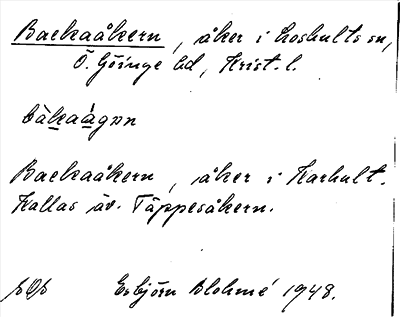 Backaåkern, åker i Loshults sn,
Ö. Göinge hd, Krist. l.
bàkaágɒn
Backaåkern, åker i Karhult.
Kallas äv. Täppesåkern.
Esbjörn Blohmé 1948.